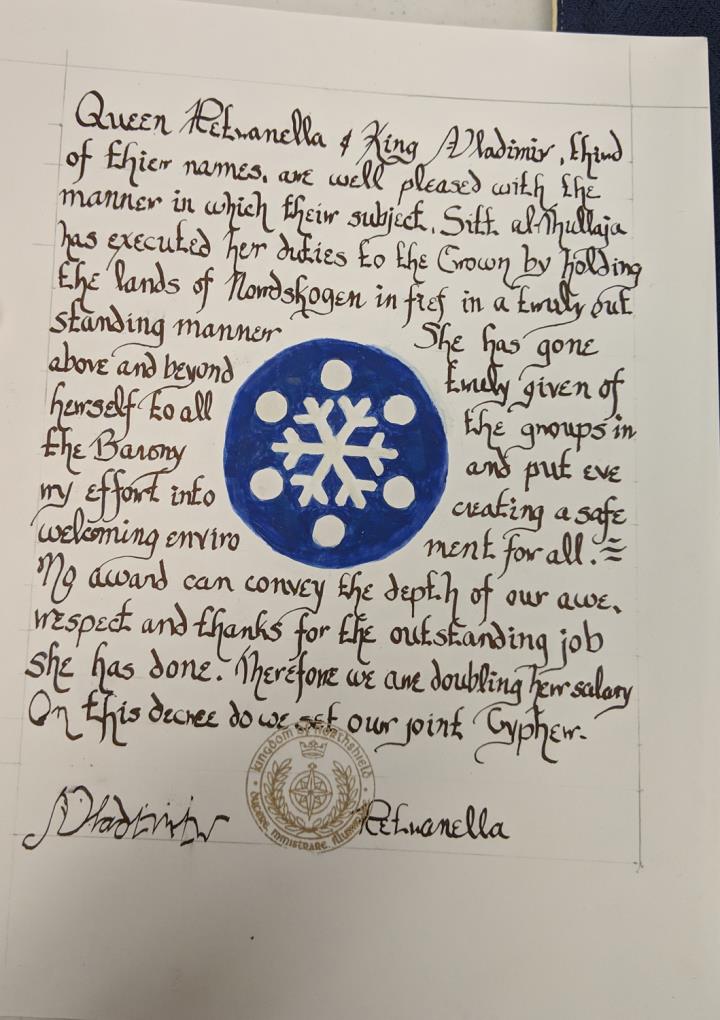 Queen Petranella & King Vladimir, third
of thier names, are well pleased with the
manner in which their subject, Sitt al-Thullaja
has executed her duties to the Crown by holding
the lands of Nordskogen in fief in a truly out
standing manner She has gone
above and beyond truly given of
herself to all the groups in
the Barony and put eve
ry effort into creating a safe
welcoming enviro ment for all.
No award can convey the depth of our awe,
respect and thanks for the outstanding job
she has done. Therefore we are doubling her salary
On this decree do we set our joint Cypher.
kingdom of northshield
ducere, ministrare,
Vladimir Petranella